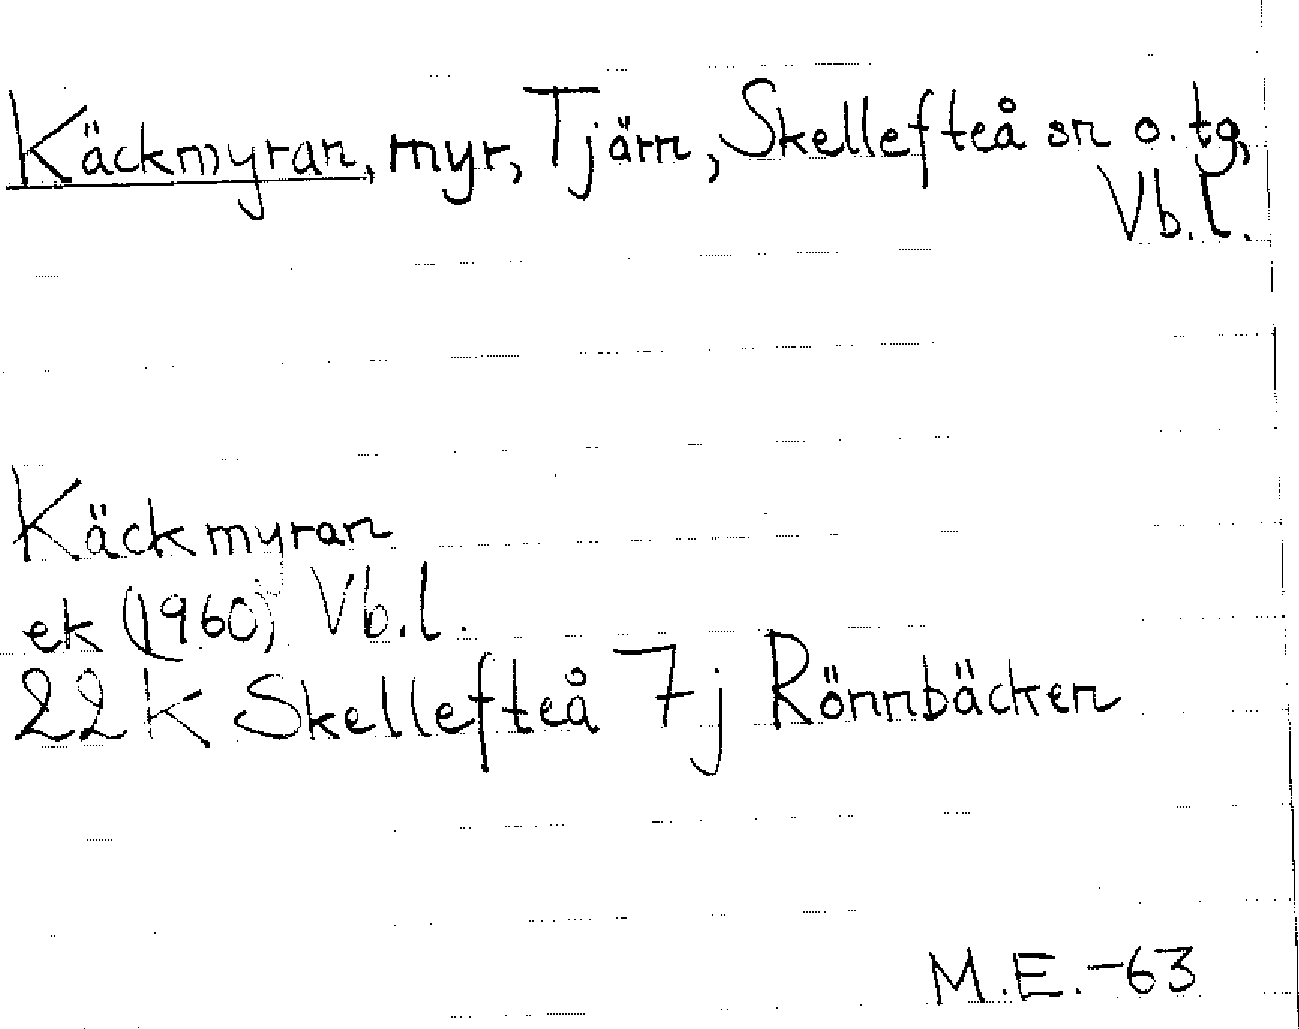 Käckmyran, myr, Tjärn, Skellefteå sn o. tg,
Vb. l.
Käckmyran
ek (1960) Vb. l.
22 K Skellefteå 7j Rönnbäcken
M.E.-63